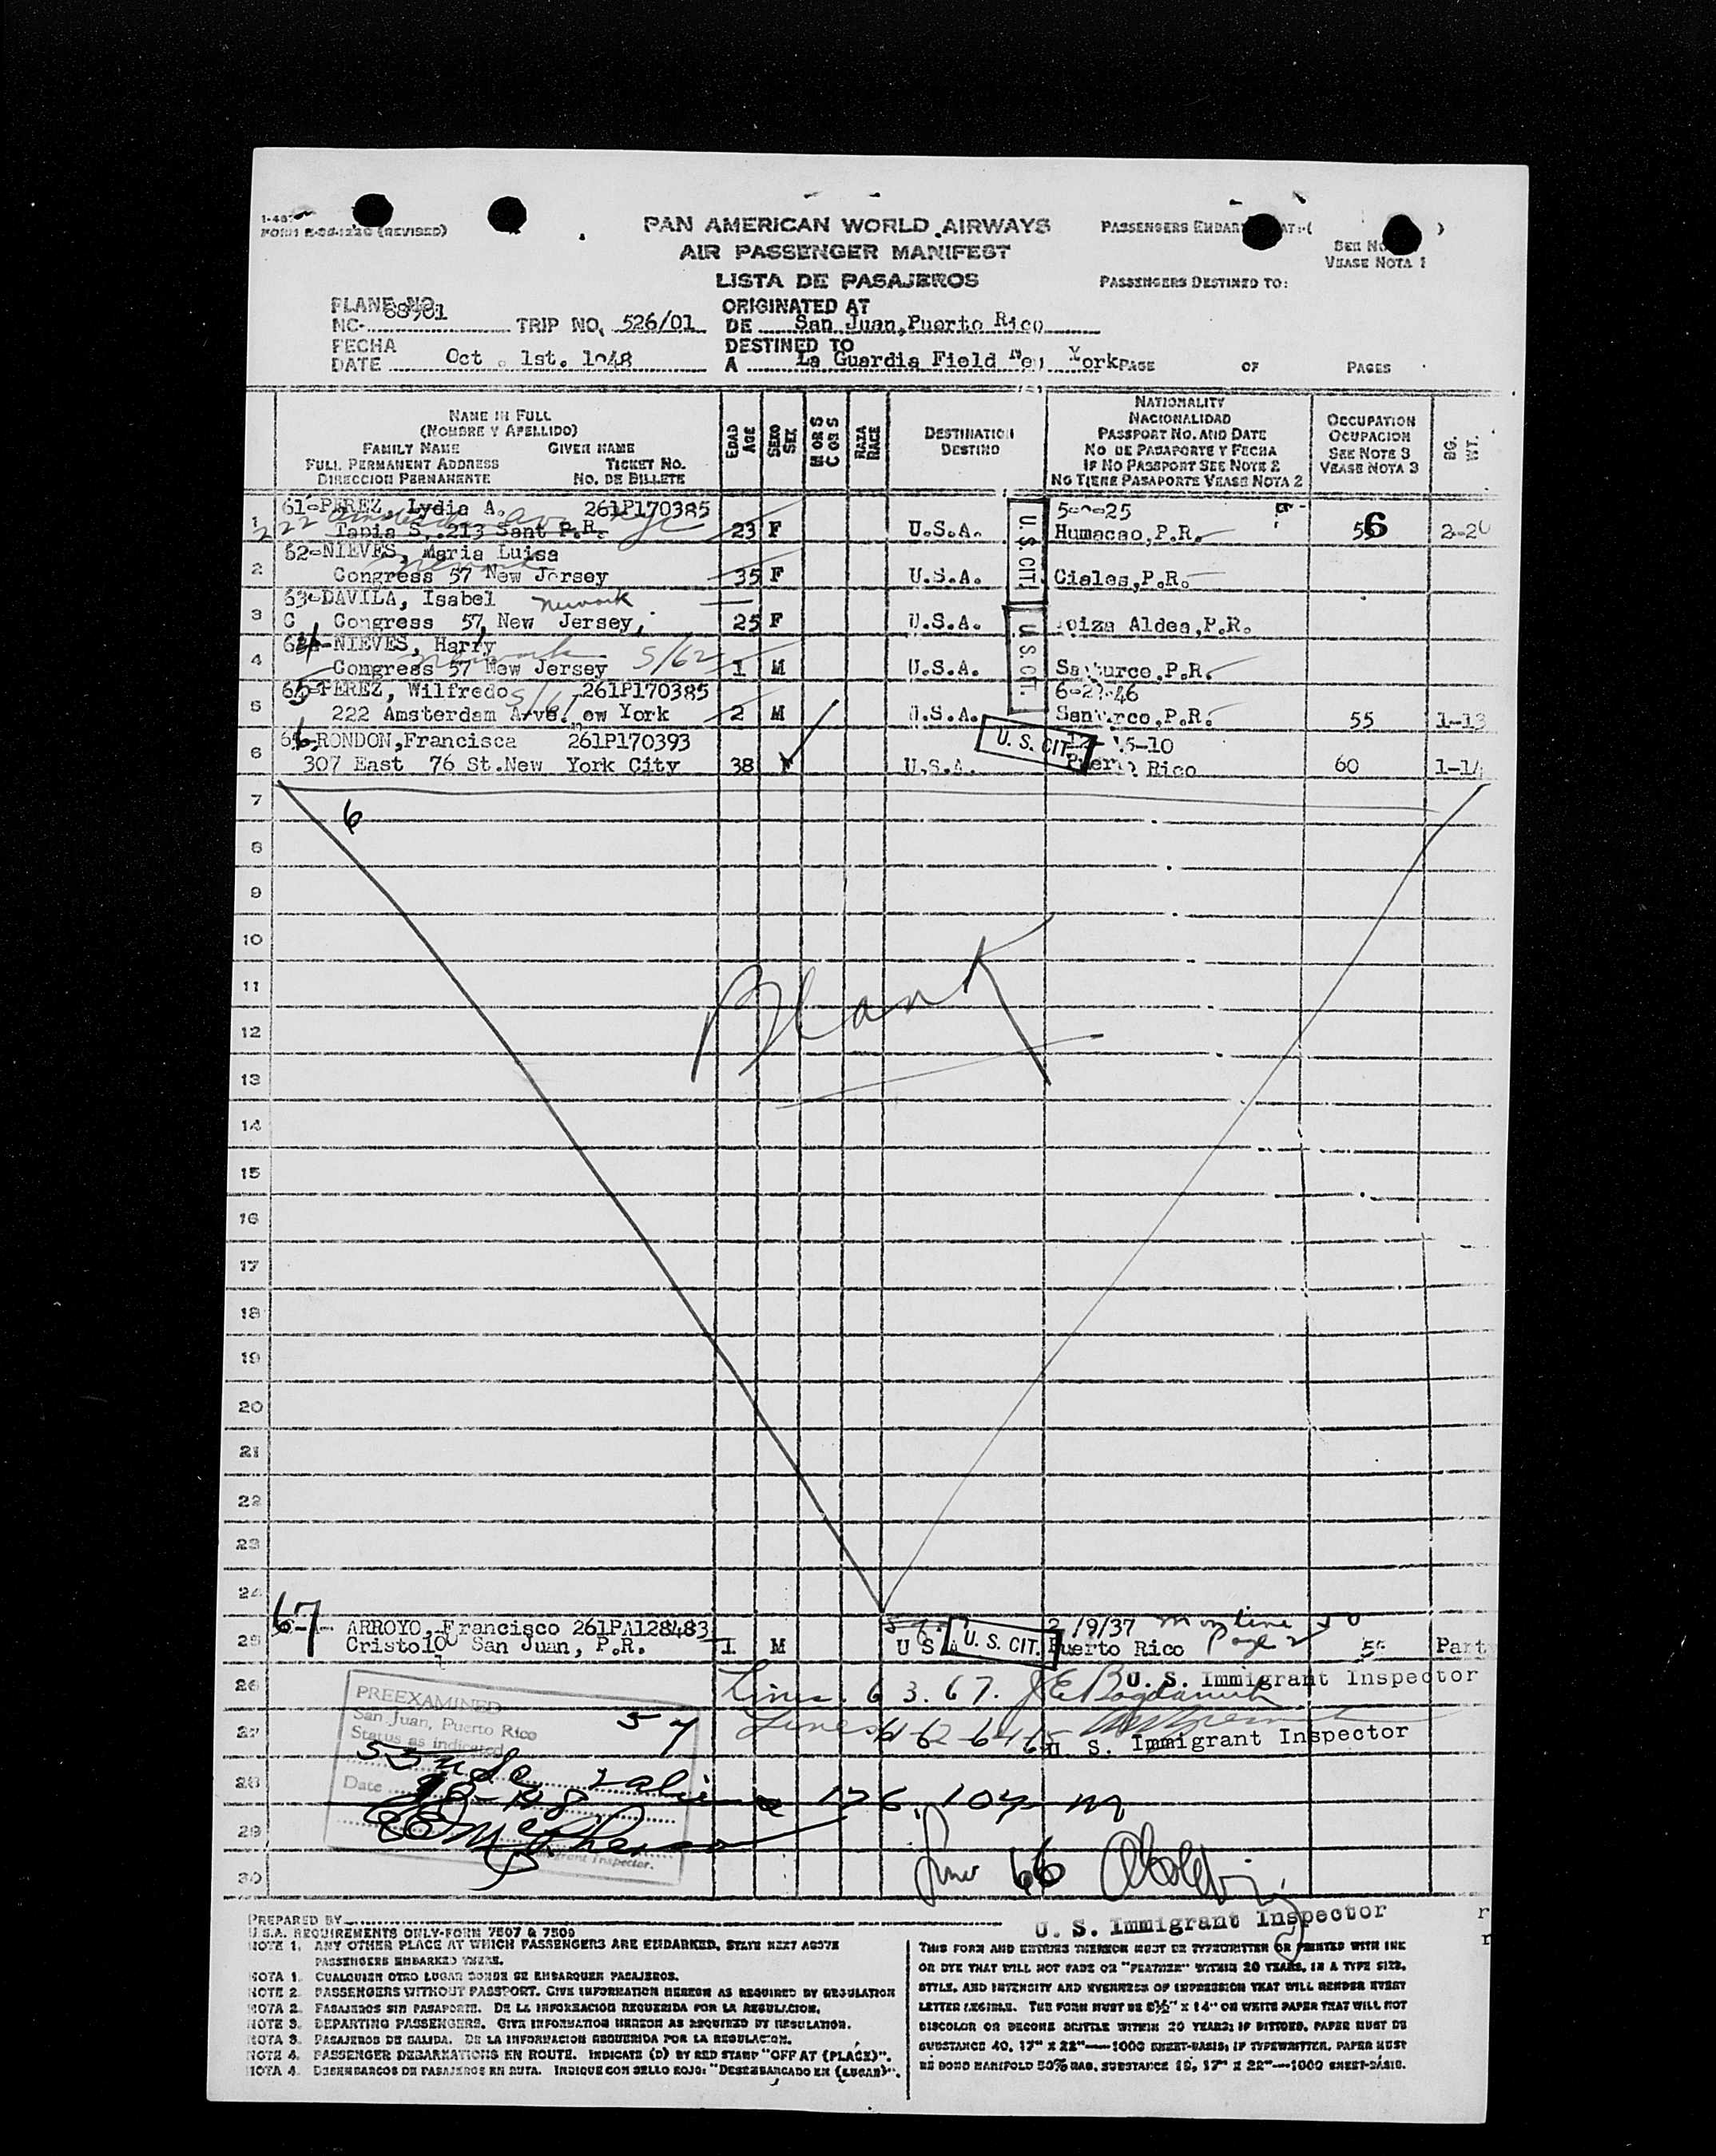 PAN AMERICAN WORLD AIRWAYS
AIR PASSENGER MANIFEST
LISTA DE PASAJEROS
(REVISED)
PASSENGERS
SEE
VEASE NOTA 1
PASSENGERS DESTINED TO:
PLANE NO.
NC- TRIP NO. 526/01
ORIGINATED AT
DE San Juan, Puerto Rico
FECHA
DATE Oct. 1st. 1948
DESTINED TO
A La Guardia Field New York PAGE OF PAGES
NAME IN FULL
(NOMBRE Y APELLIDO)
FAMILY NAME GIVEN NAME
FULL PERMANENT ADDRESS TICKET NO.
DIRECCION PERMANENTE NO. DE BILLETE
EDAD AGE
SEXO SEX
M OR S
C OR S
RAZA RACE
DESTINATION
DESTINO
NATIONALITY
NACIONALIDAD
PASSPORT NO. AND DATE
NO DE PASAPORTE Y FECHA
IF NO PASSPORT SEE NOTE 2
NO TIENE PASAPORTE VEASE NOTA 2
OCCUPATION
OCUPACION
SEE NOTE 3
VEASE NOTA 3
BG. WT.
61-PEREZ, Lydia A. 261P170385
1 Tapia S. 213 Sant P.R. 23 F U.S.A. Humacao, P.R.
62-NIEVES, Maria Luisa
2 Congress 57 New Jersey 35 F U.S.A. Ciales, P.R.
U.S. CIT.
63-DAVILA, Isabel Newark
3 C Congress 57, New Jersey, 25 F U.S.A. Aldea, P.R.
64-NIEVES, Harry
4 Congress 57 New Jersey 5/62 1 M U.S.A. Santurce, P.R.
U.S. CIT.
65-PEREZ, Wilfredo 261P170385
5 222 Amsterdam Avve. New York 2 M U.S.A. Santurce, P.R. 55 1-13
66 RONDON, Francisca 261P170393
6 307 East 76 St. New York City 38 F U.S.A. Puerto Rico 60 1-14
U. S. CIT.
7 6
8
9
10
11
Blank
12
13
14
15
16
17
18
19
20
21
22
23
24
67 ARROYO, Francisco 261PA128483 /9/37
25 San Juan, P.R. M U S A U. S. CIT. Puerto Rico Party
26 Lines 63. 67. U. S. Immigrant Inspector
PREEXAMINED
San Juan, Puerto Rico
Status as indicated
27 Lines 61-62-64-65 U. S. Immigrant Inspector
28 Date
29
Immigrant Inspector.
30 66
U. S. Immigrant Inspector
PREPARED BY
U.S.A. REQUIREMENTS ONLY-FORM 7507 & 7509
NOTE 1. ANY OTHER PLACE AT WHICH PASSENGERS ARE EMBARKED, STATE NEXT ABOVE
PASSENGERS EMBARKED THERE.
NOTA 1. CUALQUIER OTRO LUGAR DONDE SE EMBARQUEN PASAJEROS.
NOTE 2. PASSENGERS WITHOUT PASSPORT. GIVE INFORMATION HEREON AS REQUIRED BY REGULATION
NOTA 2. PASAJEROS SIN PASAPORTE. DE LA INFORMACION REQUERIDA POR LA REGULACION.
NOTE 3. DEPARTING PASSENGERS. GIVE INFORMATION HEREON AS REQUIRED BY REGULATION.
NOTA 3. PASAJEROS DE SALIDA. DE LA INFORMACION REQUERIDA POR LA REGULACION.
NOTE 4. PASSENGER DEBARKATIONS EN ROUTE. INDICATE (D) BY RED STAMP "OFF AT (PLACE)".
NOTA 4. DESEMBARCOS DE PASAJEROS EN RUTA. INDIQUE CON SELLO ROJO: "DESEMBARCADO EN (LUGAR)".
THIS FORM AND ENTRIES THEREON MUST BE TYPEWRITTEN OR PRINTED WITH INK
OR DYE THAT WILL NOT FADE OR "FEATHER" WITHIN 20 YEARS, IN A TYPE SIZE,
STYLE, AND INTENSITY AND EVENNESS OF IMPRESSION THAT WILL RENDER EVERY
LETTER LEGIBLE. THE FORM MUST BE 8½" X 14" ON WHITE PAPER THAT WILL NOT
DISCOLOR OR BECOME BRITTLE WITHIN 20 YEARS; IF DITTOED, PAPER MUST BE
SUBSTANCE 40, 17" X 22"—1000 SHEET-BASIS; IF TYPEWRITTEN, PAPER MUST
BE BOND MANIFOLD 50% RAG, SUBSTANCE 16, 17" X 22"—1000 SHEET-BASIS.